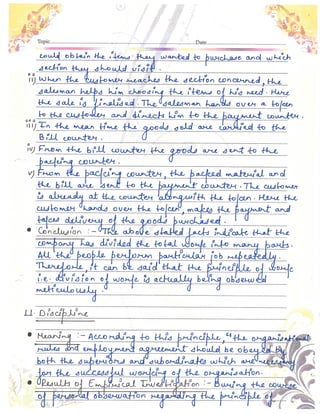 Topic Date
could obtain the items they wanted to purchase and which
section they should visit.
ii) When the customer reaches the section concerned, the
salesman helps him choosing the items of his need. Here
the sale is finalised. The salesman hands over a token
to the customer and directs him to the payment counter.
iii) In the mean time the goods sold are carried to the
Bill counter.
iv) From the bill counter the goods are sent to the
packing counter.
v) From the packing counter, the packed material and
the bill are sent to the payment counter. The customer
is already at the counter alongwith the token. Here the
customer hands over the token, makes the payment and
takes delivery of the goods purchased.
• Conclusion :- The above stated facts indicate that the
company has divided the total work into many parts.
All the people perform particular job repeatedly.
Therefore, it can be said that the principle of work
i.e. division of work is actually being observed
meticulously.
Discipline
• Meaning :- According to this principle, "the organisational
rules and employment agreement should be obeyed by
both the superiors and subordinates which are necessary
for the successful working of the organisation.
• Results of Empirical Investigation :- During the course
of personal observation regarding the principle of